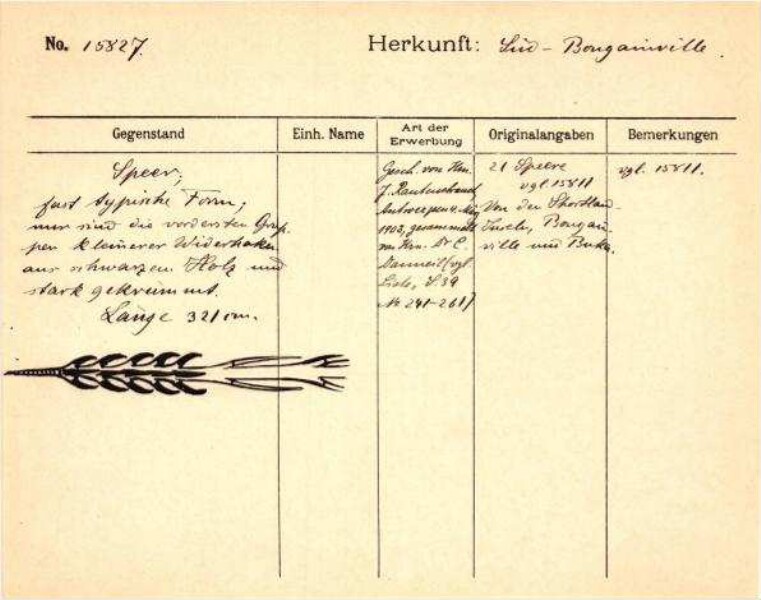 No. 15827.
Herkunft: Süd-Bougainville.
Gegenstand
Einh. Name
Art der Erwerbung
Originalangaben
Bemerkungen
Speer;
fast typische Form;
nur sind die vordersten Grup-
pen kleinerer Widerhaken
aus schwarzem Holz und
stark gekrümmt.
Länge 321 cm.
Gesch. von Hrn.
J. Rautenstrauch
Antwerpen 4. May
1903, gesammelt
von Hrn. Dr C.
Danneil (vgl.
Liste, S. 39
№ 241-261)
21 Speere
vgl. 15811
Von den Shortland-
Inseln, Bougain-
ville und Buka.
vgl. 15811.